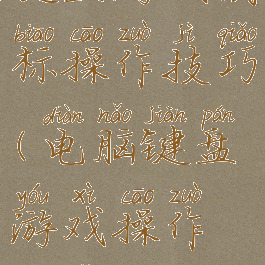 biāo cāo zuò jì qiǎo
标操作技巧
diàn nǎo jiàn pán
(电脑键盘
yóu xì cāo zuò
游戏操作